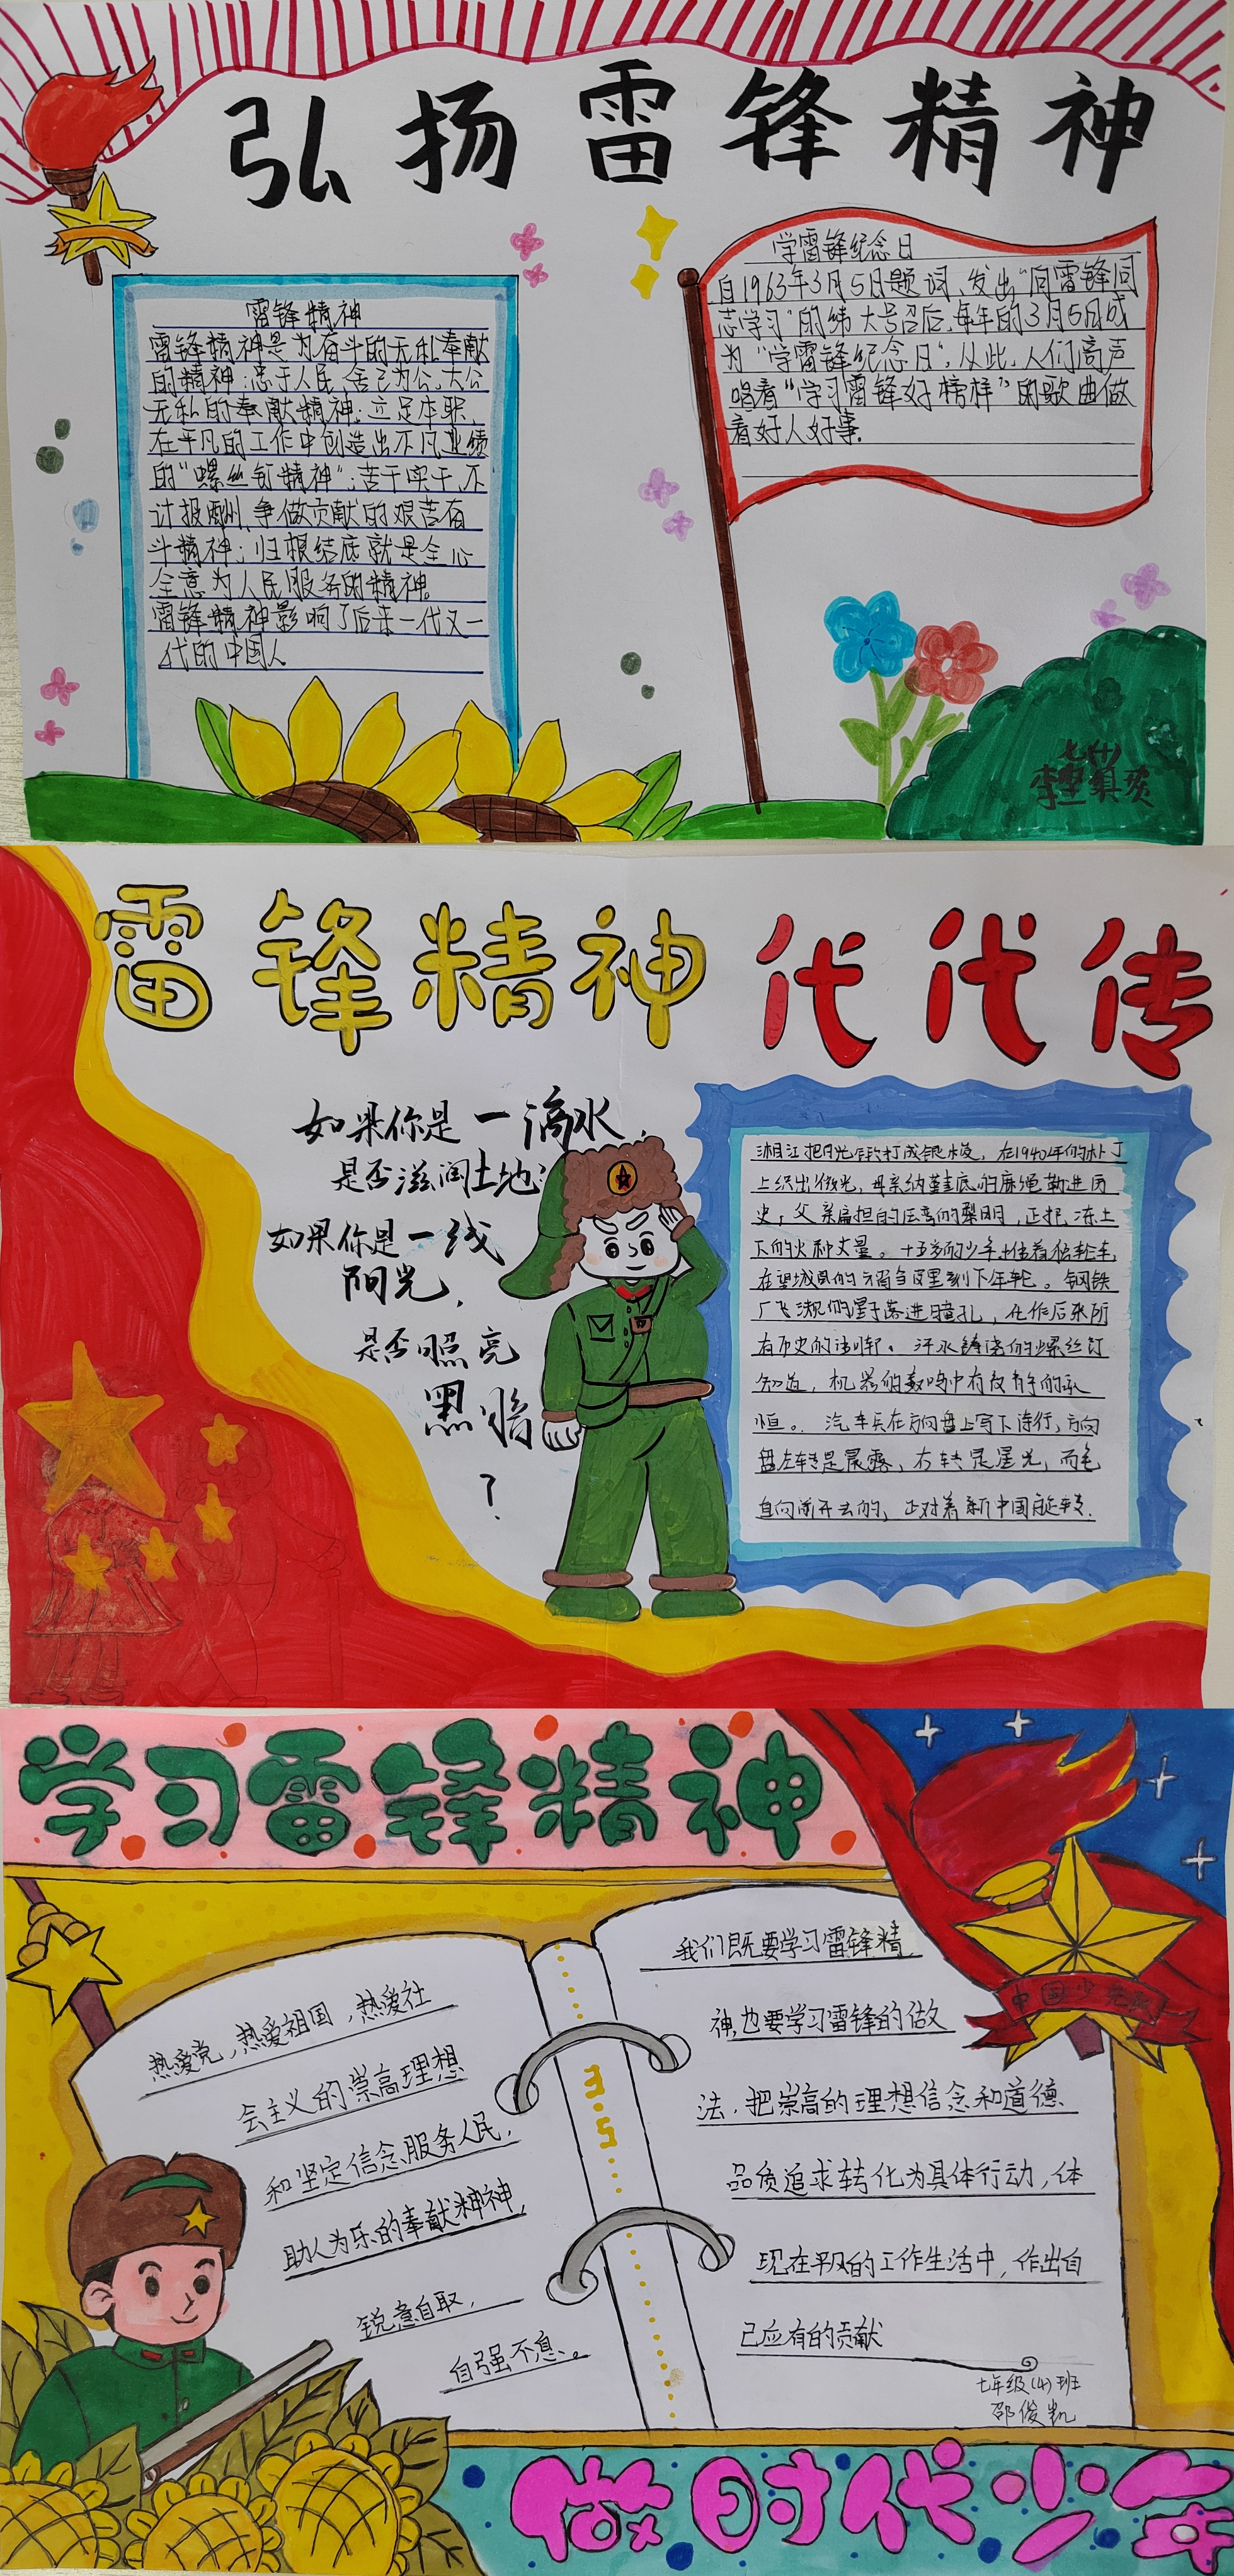 弘扬雷锋精神
雷锋精神
雷锋精神是为奋斗的无私奉献
的精神;忠于人民、舍己为公、大公
无私的奉献精神;立足本职、
在平凡的工作中创造出不凡业绩
的“螺丝钉精神”;苦干实干、不
计报酬、争做贡献的艰苦奋
斗精神;归根结底就是全心
全意为人民服务的精神。
雷锋精神影响了后来一代又一
代的中国人
学雷锋纪念日
自1963年3月5日题词、发出“向雷锋同
志学习”的伟大号召后,每年的3月5日成
为“学雷锋纪念日”,从此,人们高声
唱着“学习雷锋好榜样”的歌曲做
着好人好事.
七(十)
李
雷锋精神代代传
如果你是一滴水,
是否滋润土地?
如果你是一线
阳光,
是否照亮
黑暗
?
湘江把月光锻打成银梭,在1940年的
上织出微光,母亲纳鞋底的麻绳勒进历
史,父亲扁担的压弯的黎明,正把冻土
下的火种丈量。十五岁的少年推着独轮车,
在望城县的里刻下年轮。钢铁
厂飞溅的星子落进瞳孔,化作后来所
有历史的。汗水铸造的螺丝钉
知道,机器的轰鸣中有
恒。汽车兵在方向盘上写下诗行,方向
盘左转是晨露,右转是星光,而
直向前开去的,正对着新中国旋转.
学习雷锋精神
中国少年队
热爱党,热爱祖国,热爱社
会主义的崇高理想
和坚定信念、服务人民,
助人为乐的奉献精神,
锐意自取,
自强不息。
3.5
我们既要学习雷锋精
神,也要学习雷锋的做
法,把崇高的理想信念和道德
品质追求转化为具体行动,体
现在平凡的工作生活中,作出自
己应有的贡献
七年级(4)班
邵俊凯
做时代少年